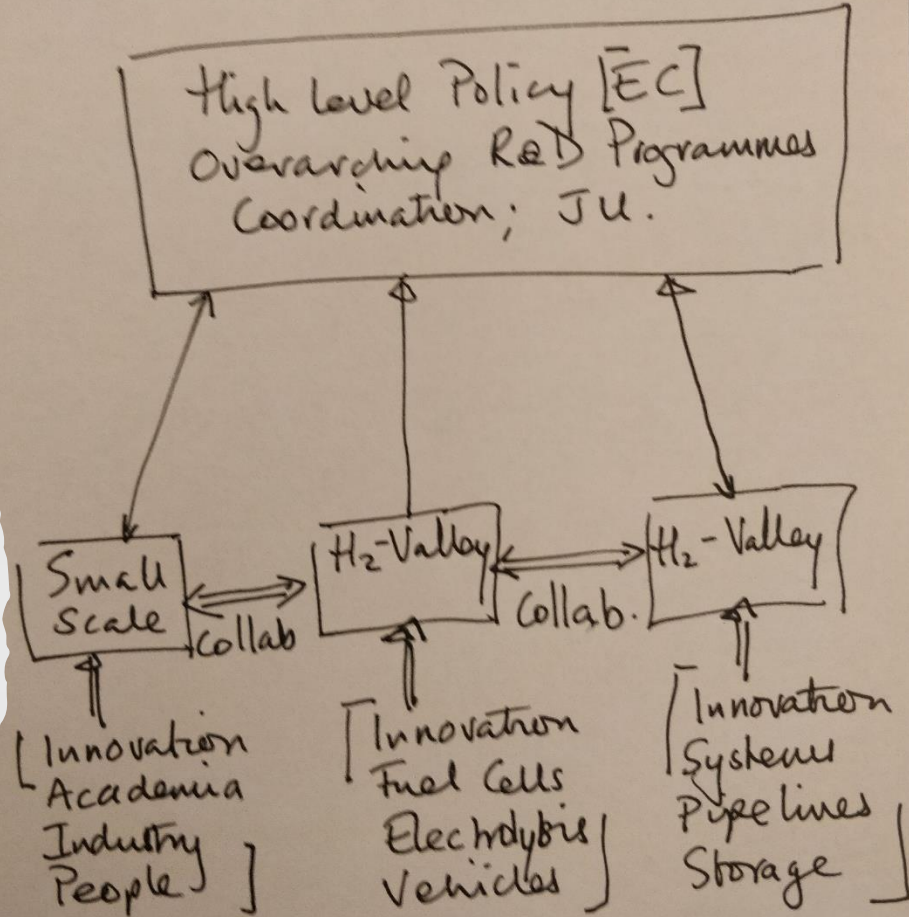 High Level Policy [EC]
Overarching R&D Programmes
Coordination; JU.
Small
Scale
Collab
H2-Valley
Collab.
H2-Valley
[Innovation
Academia
Industry
People]
[Innovation
Fuel Cells
Electrolysis
Vehicles]
[Innovation
Systems
Pipelines
Storage]